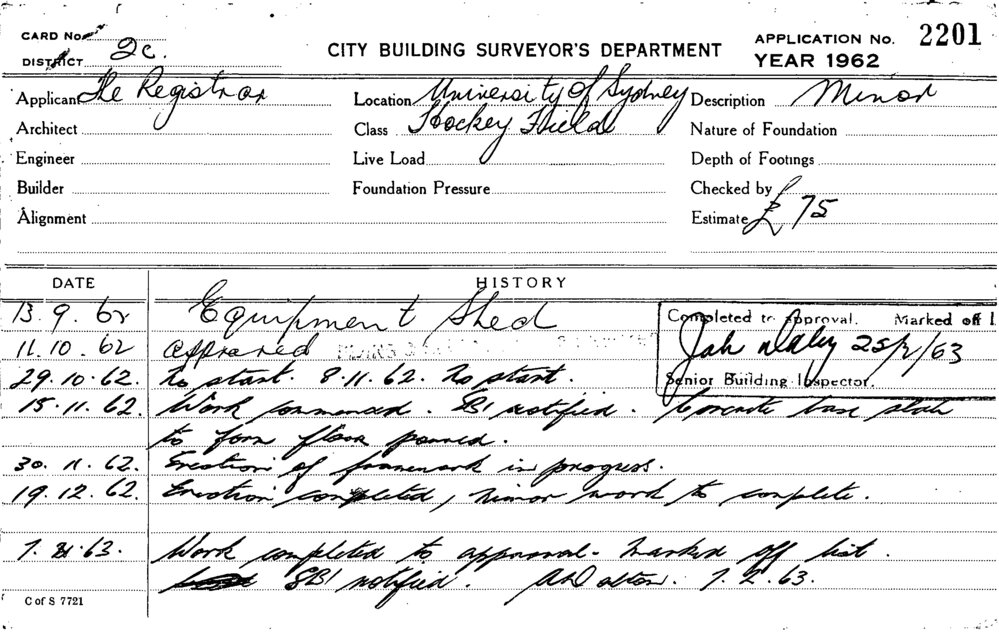 CARD No.
CITY BUILDING SURVEYOR'S DEPARTMENT
APPLICATION No. 2201
DISTRICT 2c.
YEAR 1962
Applicant The Registrar
Location University of Sydney
Description Minor
Architect
Class Hockey Field
Nature of Foundation
Engineer
Live Load
Depth of Footings
Builder
Foundation Pressure
Checked by
Alignment
Estimate £75
DATE HISTORY
13.9.62 Equipment Shed
Completed to Approval. Marked off l
11.10.62 approved
25/2/63
Senior Building Inspector.
29.10.62. No start. 8.11.62. No start.
15.11.62. Work commenced. SBI notified. Concrete base slab
to form floor poured.
30.11.62. Erection of framework in progress.
19.12.62. Erection completed, minor work to complete.
7.2.63. Work completed to approval. Marked off list.
SBI notified. 7.2.63.
C of S 7721